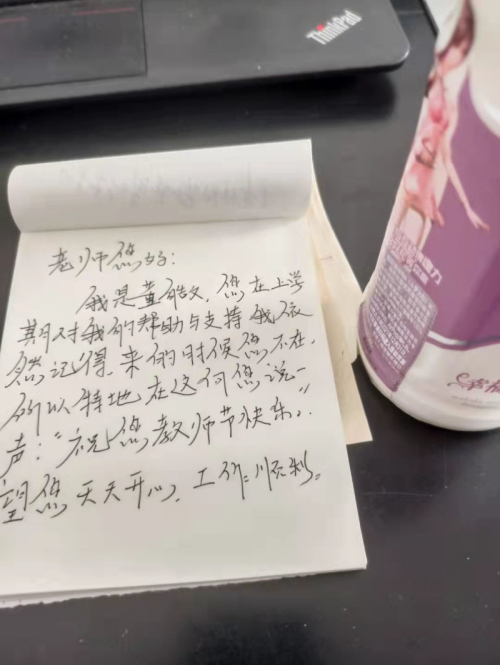 ThinkPad
老师您好:
我是董皓文,您在上学
期对我的帮助与支持我依
然记得,来的时候您不在,
所以特地在这向您说一
声:“祝您教师节快乐”.
望您天天开心,工作顺利。